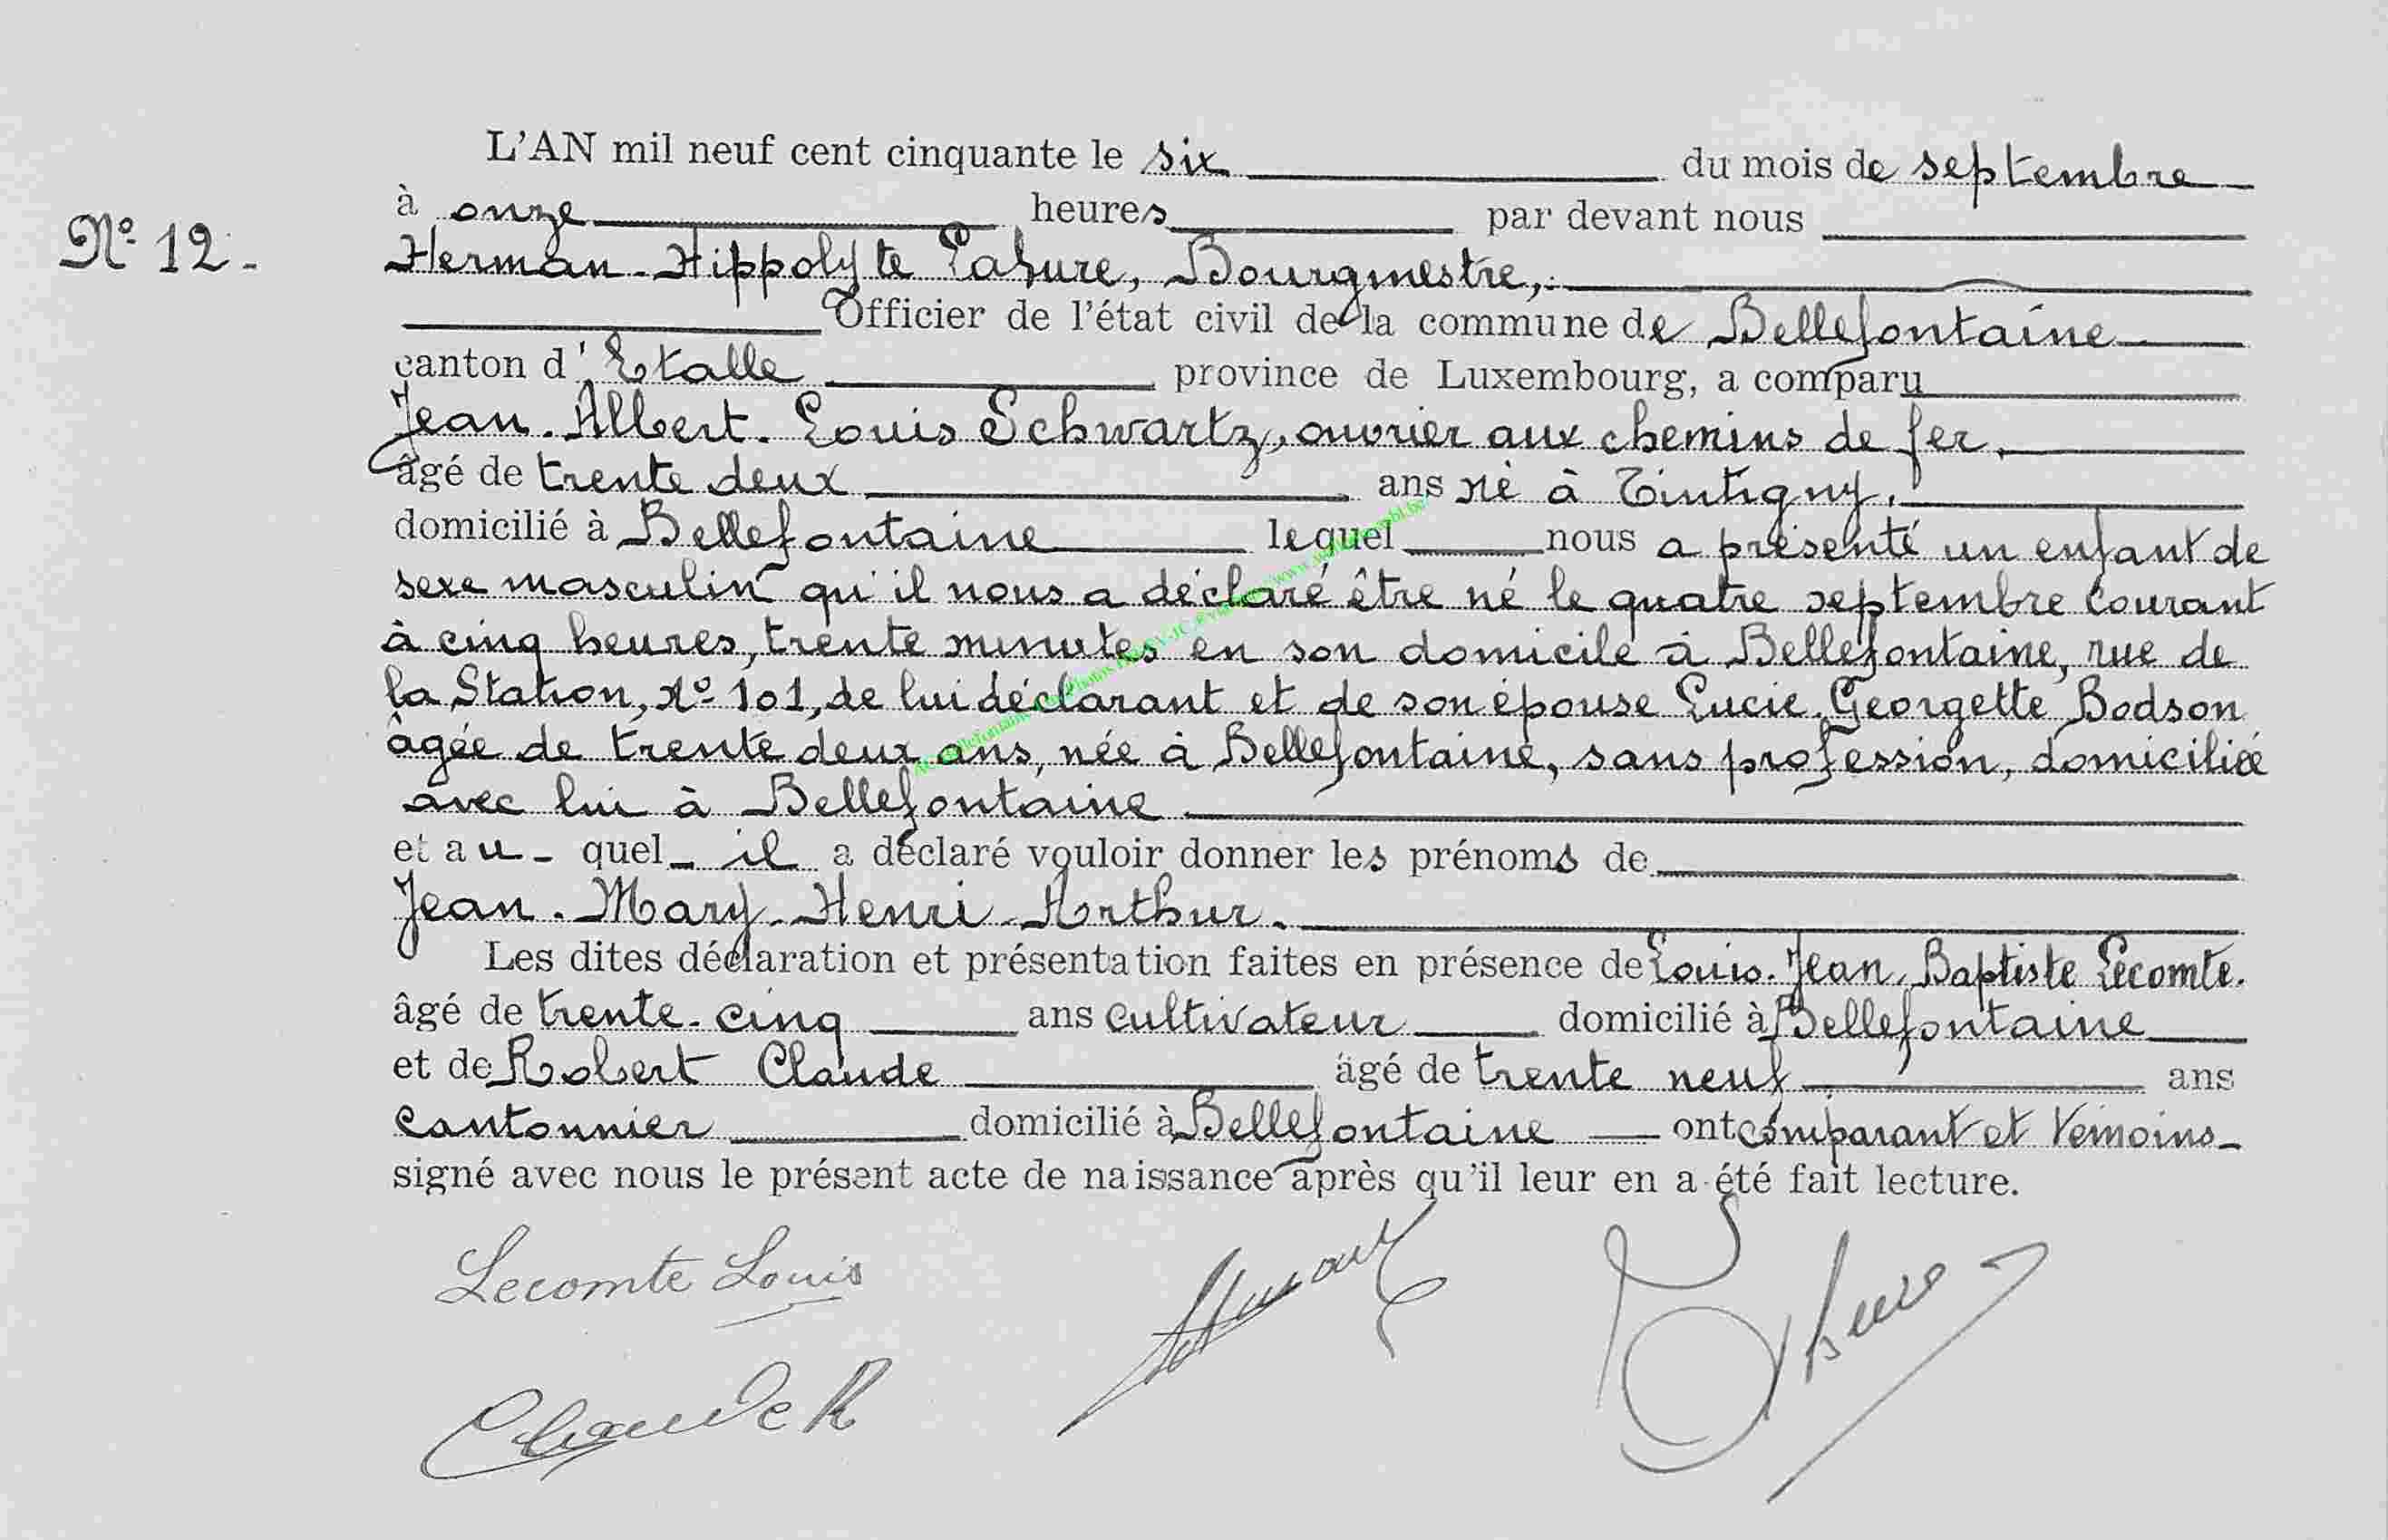 L'AN mil neuf cent cinquante le six du mois de septembre
N° 12.
à onze heures par devant nous
Herman-Hippolyte Lahure, Bourgmestre,
Officier de l'état civil de la commune de Bellefontaine
canton d'Etalle province de Luxembourg, a comparu
Jean-Albert-Louis Schwartz, ouvrier aux chemins de fer,
âgé de trente deux ans né à Tintigny,
domicilié à Bellefontaine lequel nous a présenté un enfant de
sexe masculin qu'il nous a déclaré être né le quatre septembre courant
à cinq heures, trente minutes en son domicile à Bellefontaine, rue de
la Station, N° 101, de lui déclarant et de son épouse Lucie-Georgette Bodson
âgée de trente deux ans, née à Bellefontaine, sans profession, domiciliée
avec lui à Bellefontaine
et au-quel-il a déclaré vouloir donner les prénoms de
Jean-Mary-Henri-Arthur.
Les dites déclaration et présentation faites en présence de Louis-Jean-Baptiste Lecomte.
âgé de trente-cinq ans cultivateur domicilié à Bellefontaine
et de Robert Claude âgé de trente neuf ans
cantonnier domicilié à Bellefontaine ont comparant et témoins
signé avec nous le présent acte de naissance après qu'il leur en a été fait lecture.
Lecomte Louis
Claude R